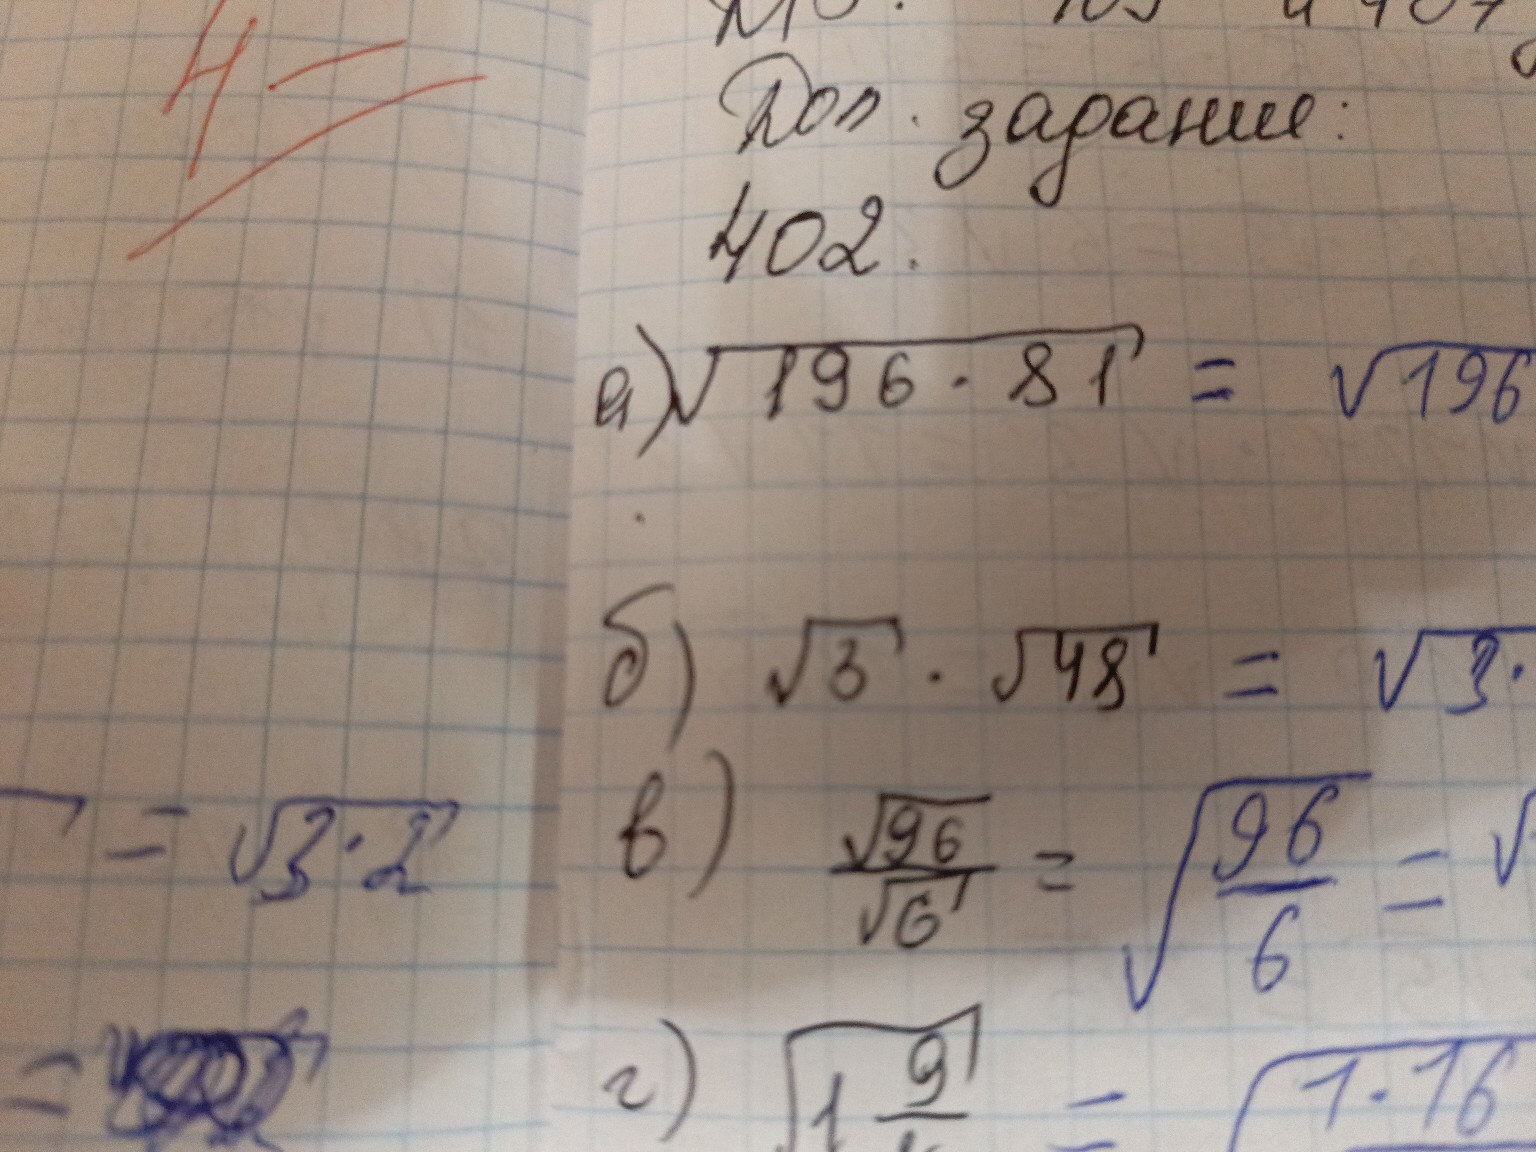 4-
Доп. задание:
402.
а) √196·81 = √196
б) √3 · √48 = √3·
= √3·2
в) √96/√6 = √96/6 = √
г) √1 9/ = √1·16
=